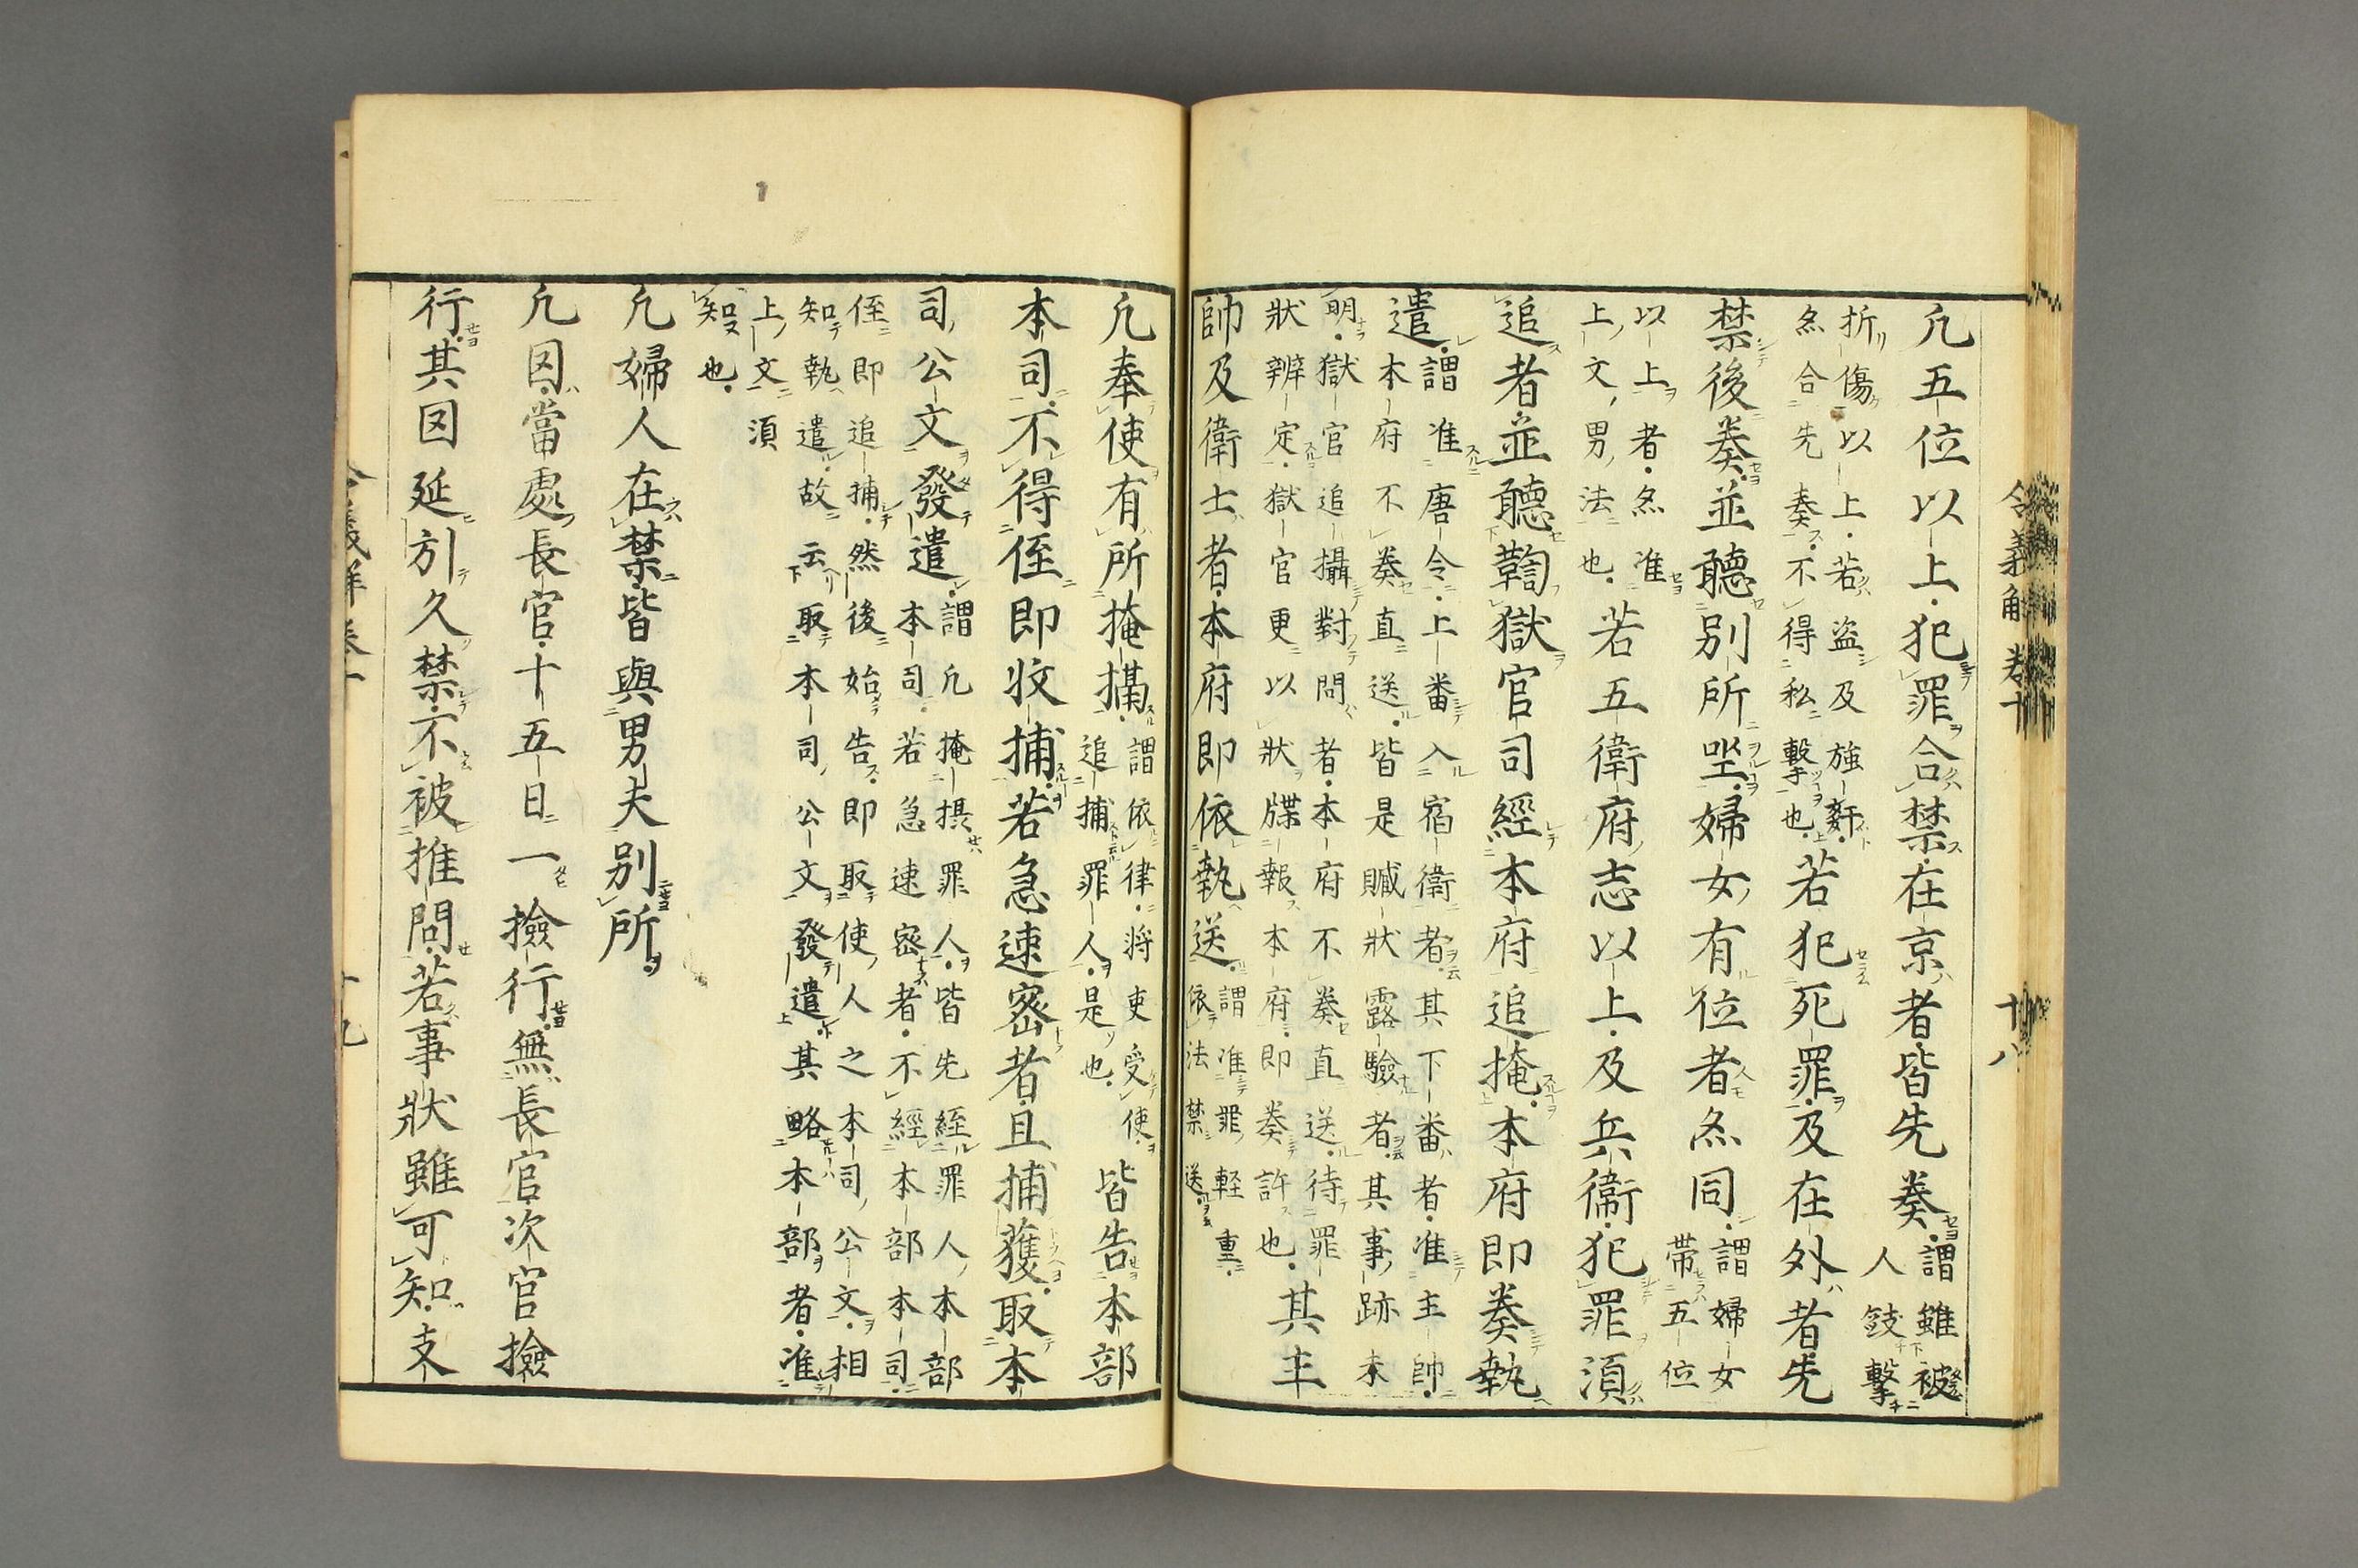 令義解 卷十 十八
凢五位以上犯罪合禁在京者皆先奏謂雖被人敆擊
折傷以上若盜及強姧𠂹合先奏不得私擊也若犯死罪及在外者先
禁後奏並聽別所坐婦女有位者𠂹同謂婦女帯五位
以上者𠂹准上文男法也若五衛府志以上及兵衞犯罪湏
追者並聽鞫獄官司經本府追掩本府即奏執
遣謂准唐令上番入宿衛者其下番者准主帥本府不奏直送皆是贓狀露驗者其事跡未
明獄官追攝對問者本府不奏直送待罪狀辨定獄官更以狀牒報本府即奏許也其主
帥及衛士者本府即依執送謂准罪軽重依法禁送
凢奉使有所掩撾謂依律將吏受使追捕罪人是也皆告本部
本司不得侄即收捕若急速宻者且捕獲取本
司公文發遣謂凢掩摂罪人皆先經罪人本部本司若急速宻者不經本部本司
侄即追捕然後始告即取使人之本司公文相知執遣故云取本司公文發遣其略本部者准
上文湏
知也
凢婦人在禁皆與男夫別所
凢囚當處長官十五日一撿行無長官次官撿
行其囚延引久禁不被推問若事狀雖可知支